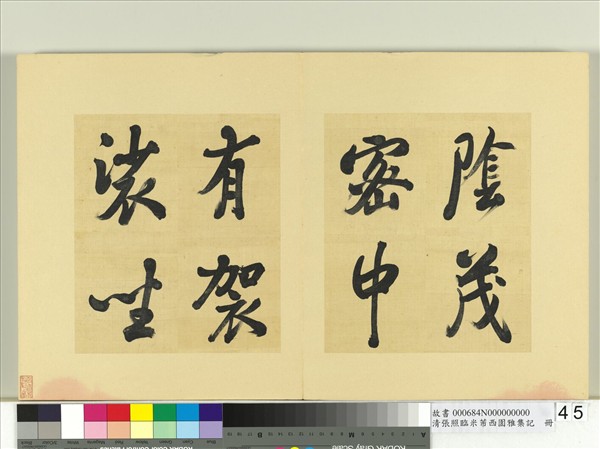 陰茂
密中
有袈
裟坐
故書 000684N000000000
清張照臨米芾西園雅集記 冊
45
KODAK Gray Scale